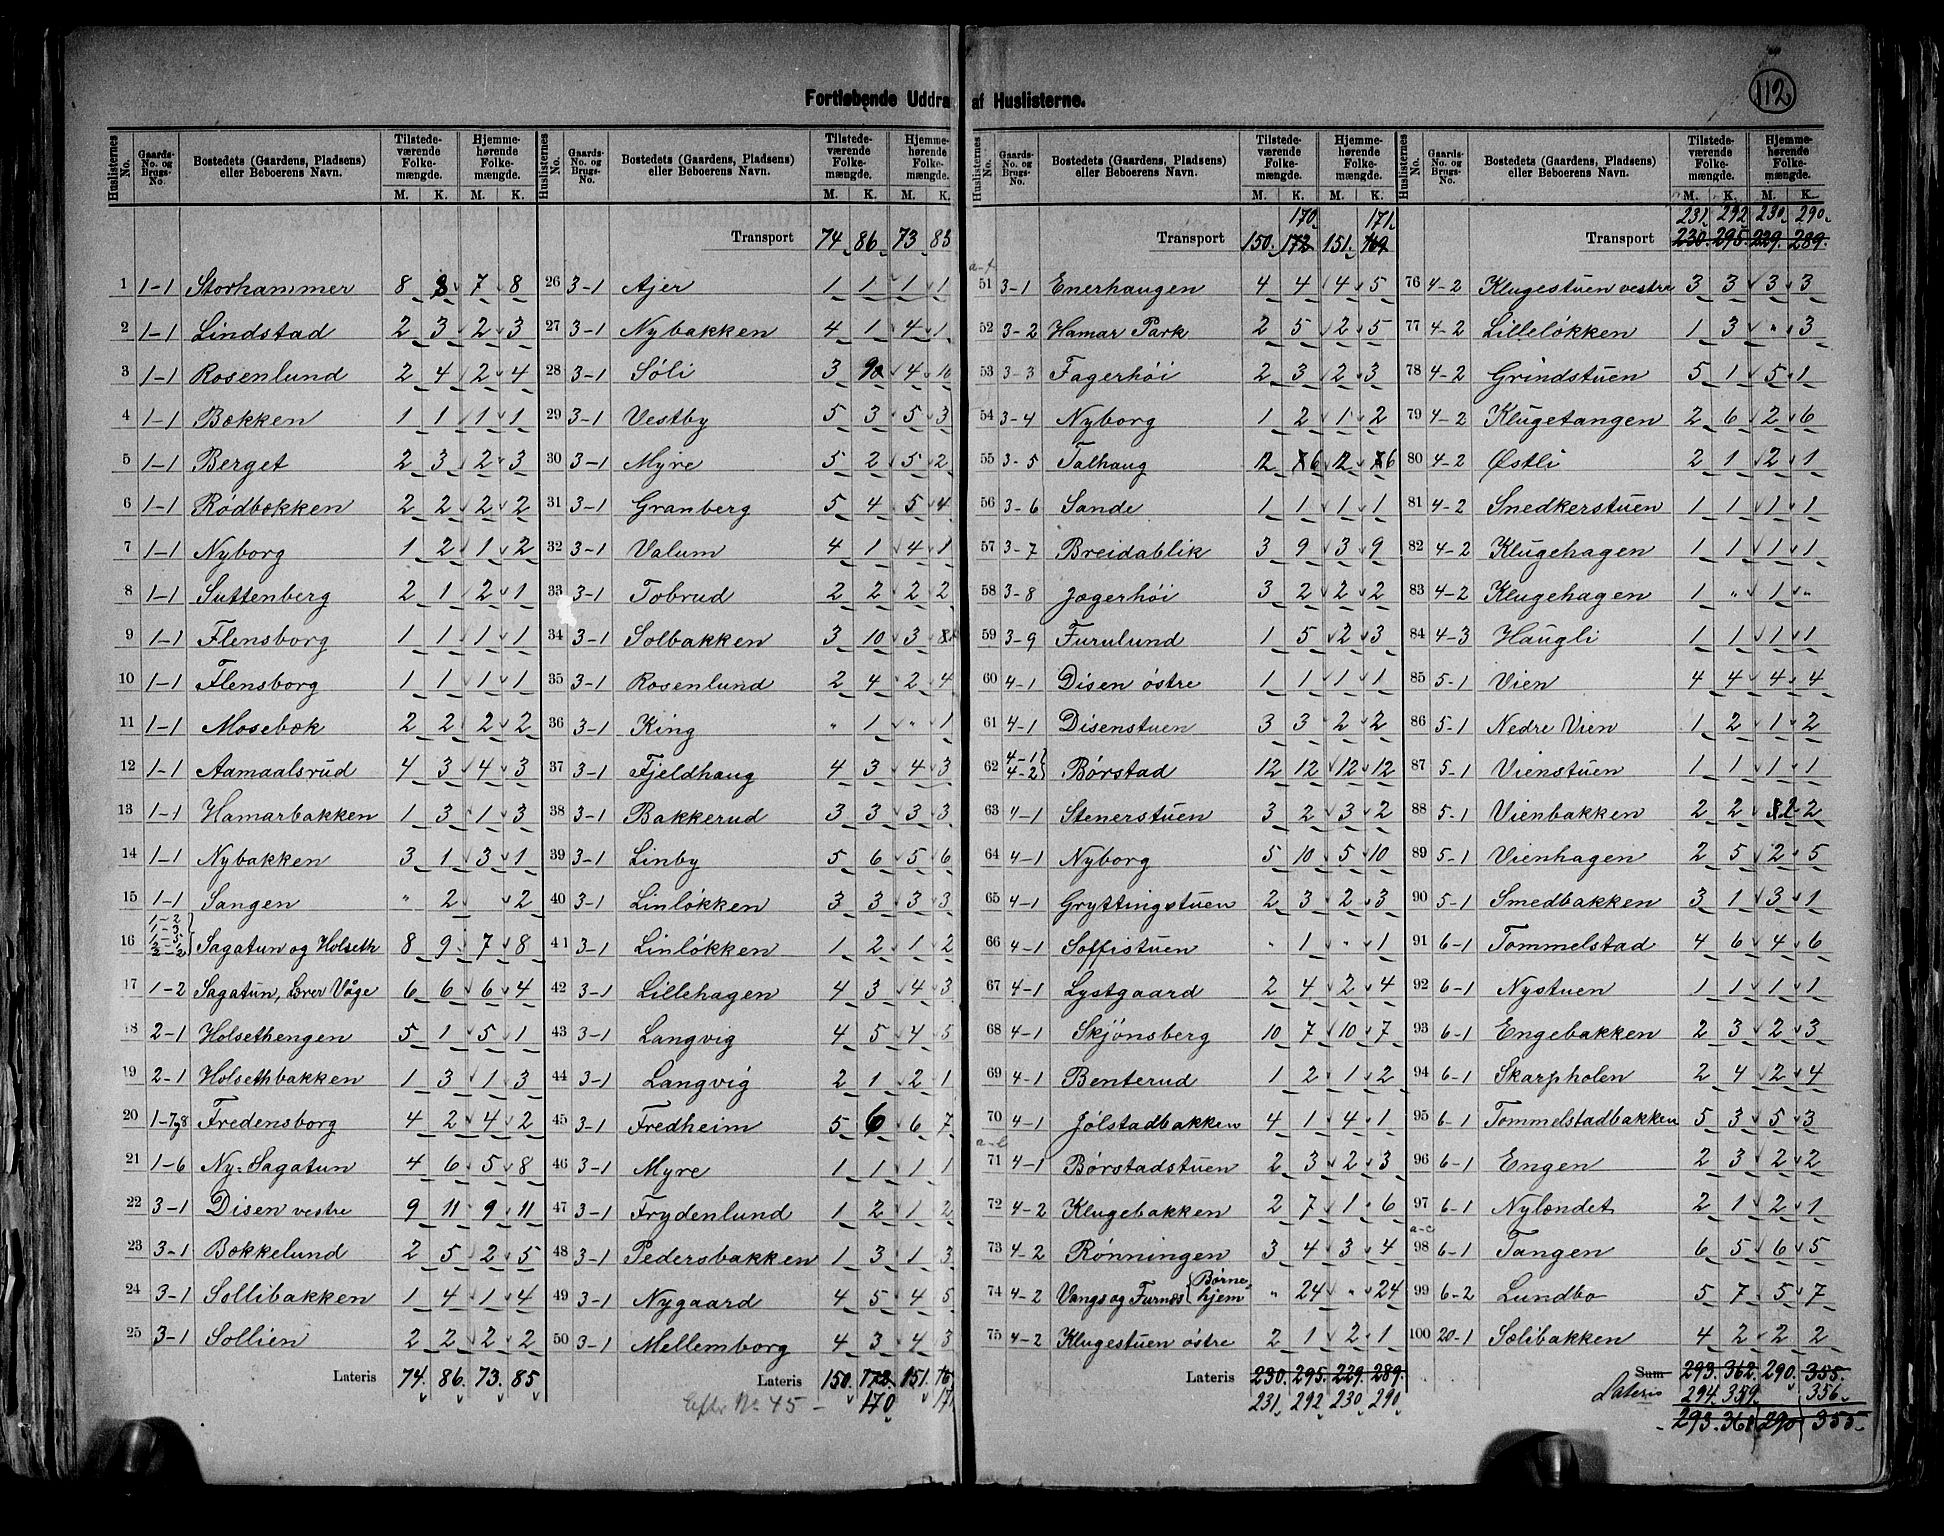 112
Fortløbende Uddra af Huslisterne.
Huslisternes No. | Gaards-No. og Brugs-No. | Bostedets (Gaardens, Pladsens) eller Beboerens Navn. | Tilstedeværende Folkemængde. M. K. | Hjemmehørende Folkemængde. M. K.
1 1-1 Storhammer 8 8 7 8
2 1-1 Lindstad 2 3 2 3
3 1-1 Rosenlund 2 4 2 4
4 1-1 Bækken 1 1 1 1
5 1-1 Berget 2 3 2 3
6 1-1 Rødbækken 2 2 2 2
7 1-1 Nyborg 1 2 1 2
8 1-1 Suttenberg 2 1 2 1
9 1-1 Flensborg 1 1 1 1
10 1-1 Flensborg 1 1 1 1
11 1-1 Mosebæk 2 2 2 2
12 1-1 Aamaalsrud 4 3 4 3
13 1-1 Hamarbakken 1 3 1 3
14 1-1 Nybakken 3 1 3 1
15 1-1 Sangen " 2 2
16 1-2 1-3 1-5 2-2 Sagatun og Holseth 8 9 7 8
17 1-2 Sagatun, Lærer Våge 6 6 6 4
18 2-1 Holsethengen 5 1 5 1
19 2-1 Holsethbakken 1 3 1 3
20 1-7 8 Fredensborg 4 2 4 2
21 1-6 Ny-Sagatun 4 6 5 8
22 3-1 Disen vestre 9 11 9 11
23 3-1 Bækkelund 2 5 2 5
24 3-1 Sollibakken 1 4 1 4
25 3-1 Sollien 2 2 2 2
Lateris 74. 86. 73. 85
Huslisternes No. | Gaards-No. og Brugs-No. | Bostedets (Gaardens, Pladsens) eller Beboerens Navn. | Tilstedeværende Folkemængde. M. K. | Hjemmehørende Folkemængde M. K.
Transport 74 86 73 85
26 3-1 Ajer 1 1 1 1
27 3-1 Nybakken 4 1 4 1
28 3-1 Søli 3 9 4 10
29 3-1 Vestby 5 3 5 3
30 3-1 Myre 5 2 5 2
31 3-1 Granberg 5 4 5 4
32 3-1 Valum 4 1 4 1
33 3-1 Tobrud 2 2 2 2
34 3-1 Solbakken 3 10 3 8
35 3-1 Rosenlund 2 4 2 4
36 3-1 King " 1 " 1
37 3-1 Fjeldhaug 4 3 4 3
38 3-1 Bakkerud 3 3 3 3
39 3-1 Linby 5 6 5 6
40 3-1 Linløkken 3 3 3 3
41 3-1 Linløkken 1 2 1 2
42 3-1 Lillehagen 4 3 4 3
43 3-1 Langvig 4 5 4 5
44 3-1 Langvig 2 1 2 1
45 3-1 Fredheim 5 6 6 7
46 3-1 Myre 1 1 1 1
47 3-1 Frydenlund 1 2 1 2
48 3-1 Pedersbakken 1 3 1 3
49 3-1 Nygaard 4 5 4 5
50 3-1 Mellemborg 4 3 4 3
Lateris 150. 172. 151. 16
Efter No 45 - 170 17
Huslisternes No. | Gaards-No. og Brugs-No. | Bostedets (Gaardens, Pladsens) eller Beboerens Navn. | Tilstedeværende Folkemængde. M. K. | Hjemmehørende Folkemængde. M. K.
170. 171.
Transport 150. 172 151. 169
a-f
51 3-1 Enerhaugen 4 4 4 5
52 3-2 Hamar Park 2 5 2 5
53 3-3 Fagerhøi 2 3 2 3
54 3-4 Nyborg 1 2 1 2
55 3-5 Talhaug 2 6 2 6
56 3-6 Sande 1 1 1 1
57 3-7 Breidablik 3 9 3 9
58 3-8 Jægerhøi 3 2 2 2
59 3-9 Furulund 1 5 2 3
60 4-1 Disen østre 1 1 1 1
61 4-1 Disenstuen 3 3 2 2
62 4-1 4-2 Børstad 12 12 12 12
63 4-1 Stenerstuen 3 2 3 2
64 4-1 Nyborg 5 10 5 10
65 4-1 Gryttingstuen 2 3 2 3
66 4-1 Soffistuen " 1 " 1
67 4-1 Lystgaard 2 4 2 4
68 4-1 Skjønsberg 10 7 10 7
69 4-1 Benterud 1 2 1 2
70 4-1 Jølstadbakken 4 1 4 1
71 4-1 Børstadstuen 2 3 2 3
72 4-2 Klugebakken 2 7 1 6
73 4-2 Rønningen 3 4 3 4
74 4-2 Vangs og Furnæs Børnehjem " 24 " 24
75 4-2 Klugestuen østre 2 1 2 1
Lateris 230. 295. 229. 289.
231. 292 230 290
Huslisternes No. | Gaards-No. og Brugs-No. | Bostedets (Gaardens, Pladsens) eller Beboerens Navn. | Tilstedeværende Folkemængde. M. K. | Hjemmehørende Folkemængde. M. K.
231. 292 230 290.
Transport 230. 295. 229. 289.
76 4-2 Klugestuen vestre 3 3 3 3
77 4-2 Lilleløkken 1 3 " 3
78 4-2 Grindstuen 5 1 5 1
79 4-2 Klugetangen 2 6 2 6
80 4-2 Østli 2 1 2 1
81 4-2 Snedkerstuen 1 1 1 1
82 4-2 Klugehagen 1 1 1 1
83 4-2 Klugehagen 1 " 1 "
84 4-3 Haugli 1 1 1 1
85 5-1 Vien 4 4 4 4
86 5-1 Nedre Vien 1 2 1 2
87 5-1 Vienstuen 1 1 1 1
88 5-1 Vienbakken 2 2 2 2
89 5-1 Vienhagen 2 5 2 5
90 5-1 Smedbakken 3 1 3 1
91 6-1 Tommelstad 4 6 4 6
92 6-1 Nystuen 1 1 1 1
93 6-1 Engebakken 2 3 2 3
94 6-1 Skarpholen 2 4 2 4
95 6-1 Tommelstadbakken 5 3 5 3
96 6-1 Engen 2 3 2 2
97 6-1 Nylændet 2 1 2 1
a-c
98 6-1 Tangen 6 5 6 5
99 6-2 Lundbo 5 7 5 7
100 20-1 Sælibakken 4 2 2 2
Sum 293. 362. 290. 355.
Lateris 294. 359. 356.
293. 361 290 355